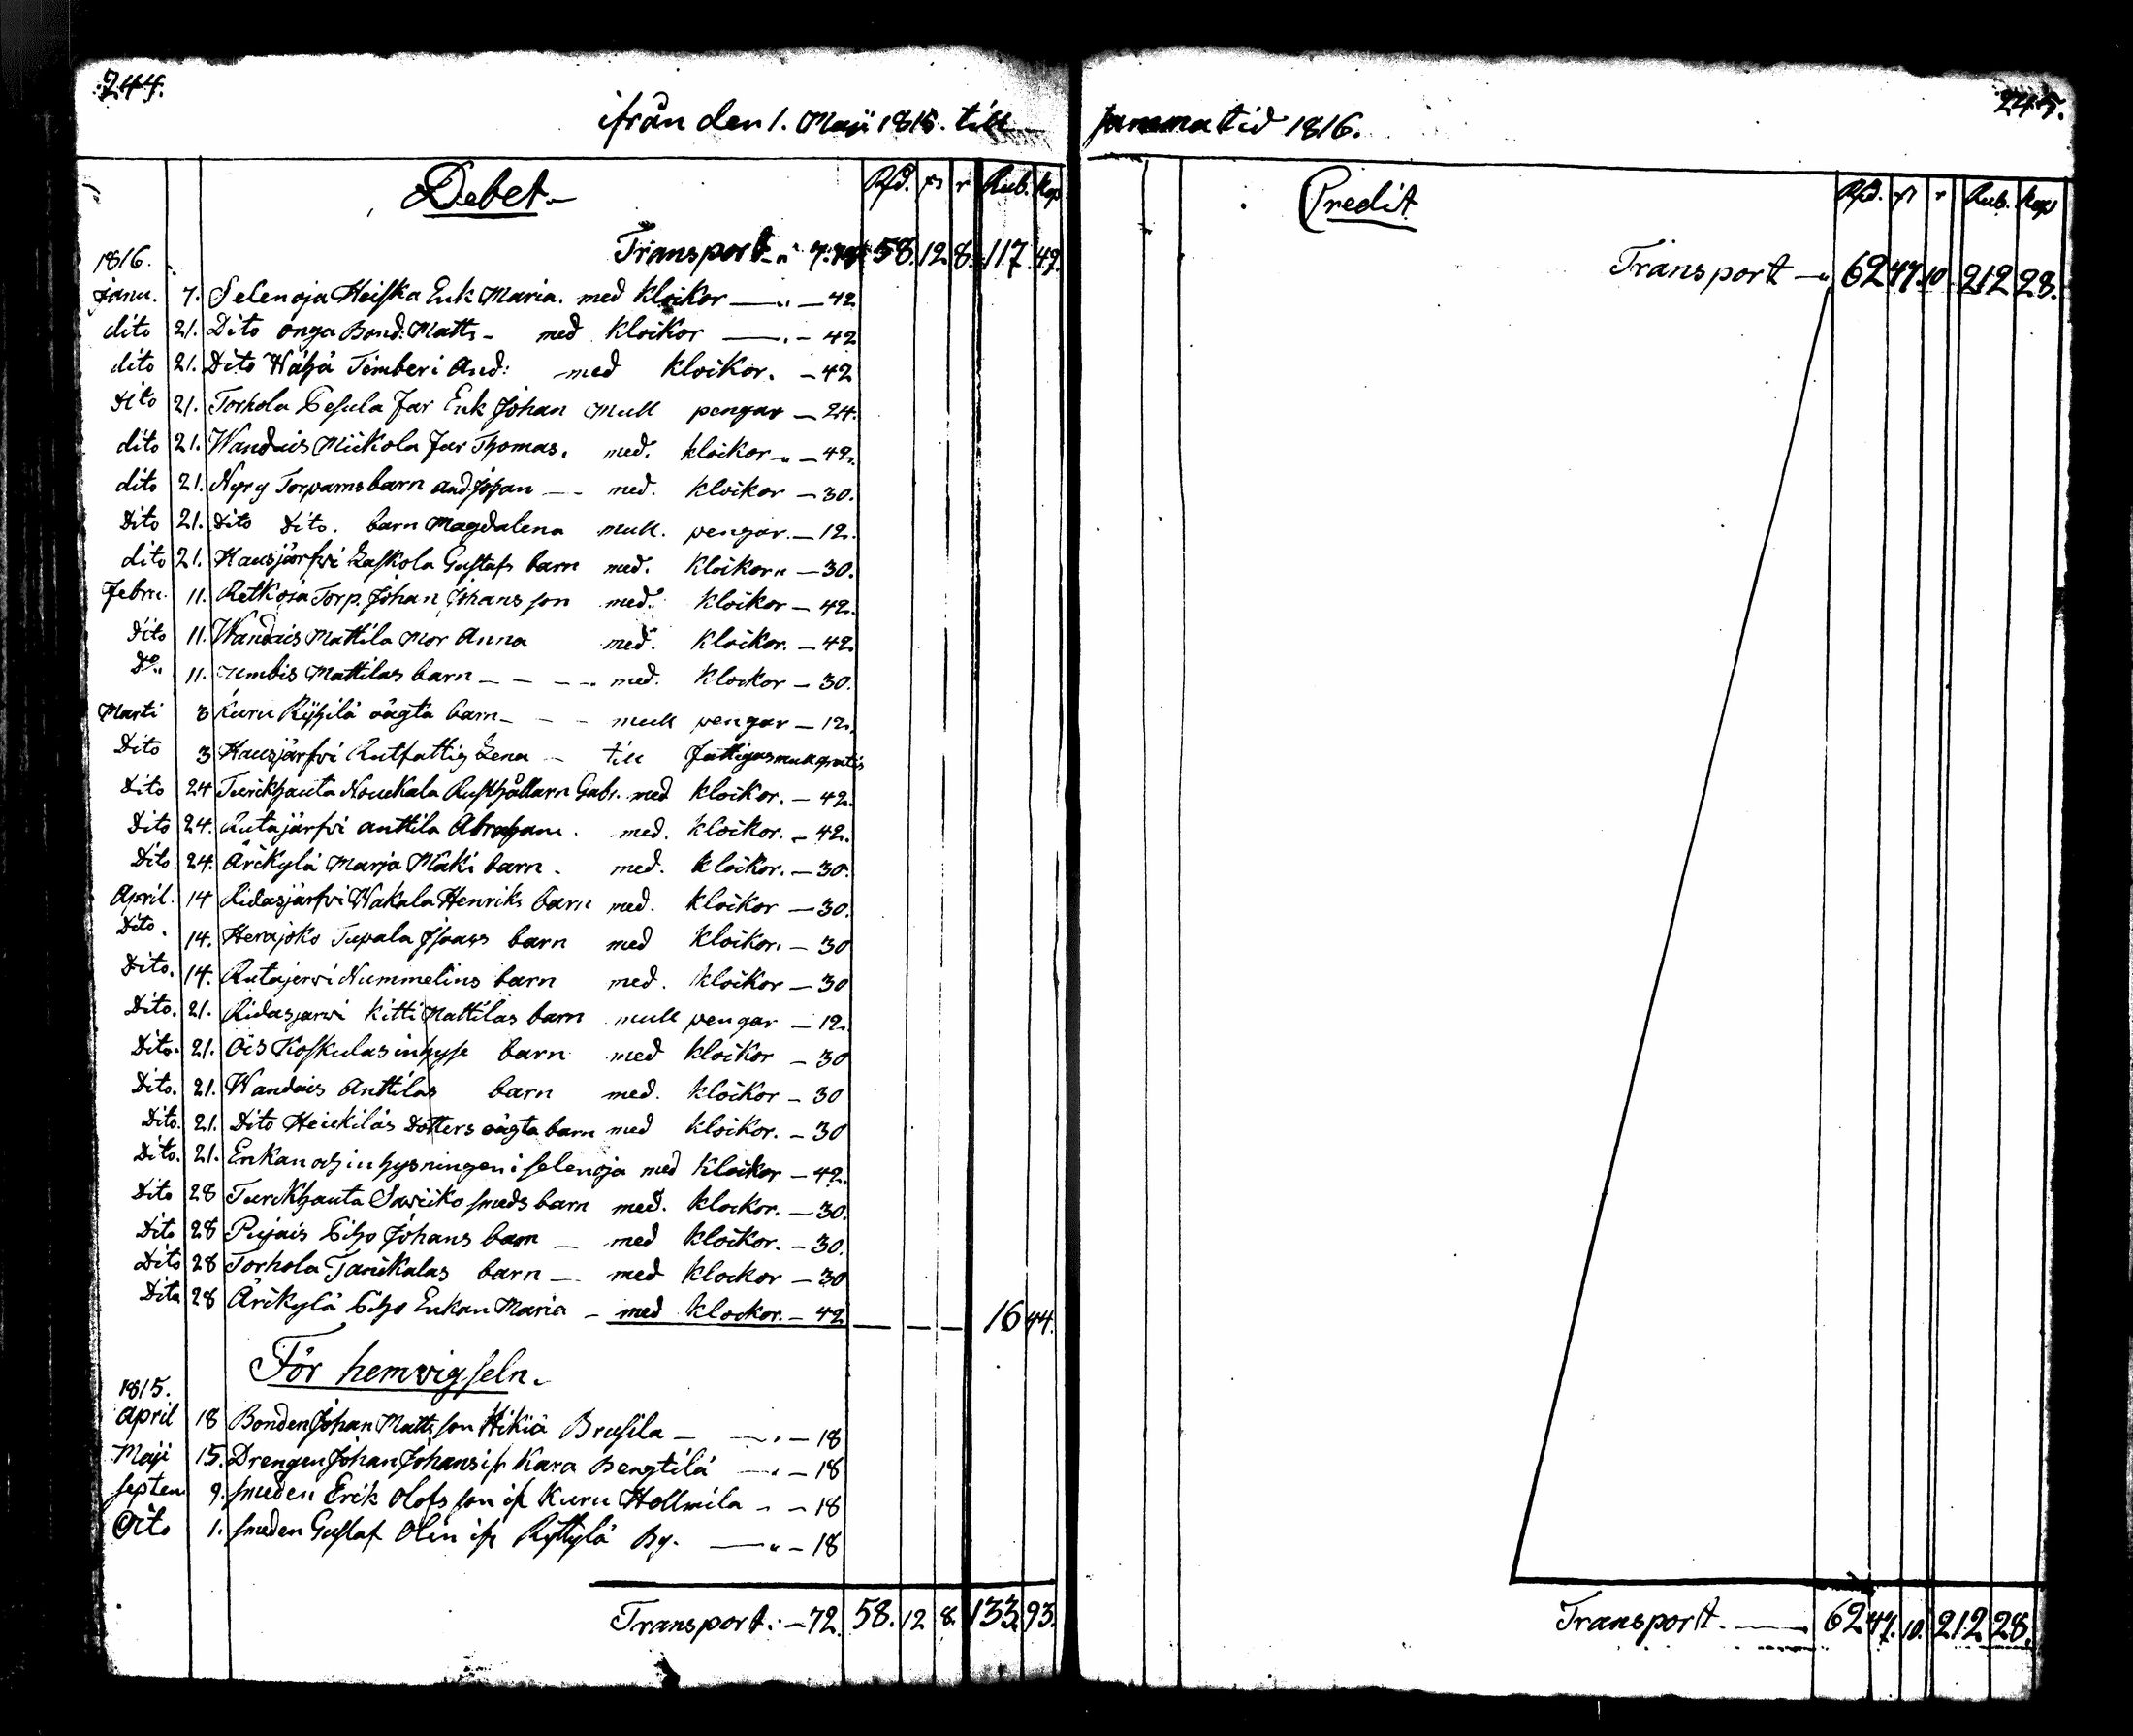 244.
ifrån den 1. Maji 1815. till
Debet.
Rd. r Rub. Kop
Transport 7:74 58. 12. 8. 117. 49.
1816.
Janu. 7. Selenoja Heiska Enk Maria. med klockor — 42
dito 21. Dito onga Bond: Matts - med klockor — 42
dito 21. Dito Wähä Timberi And: med klockor. — 42
Dito 21. Torhola Pesula Far Enk Johan Mull pengar — 24.
dito 21. Wandais Mickola Far Thomas. med. klockor — 42.
dito 21. Nyry Torparns barn And. Johan — med. klockor — 30.
Dito 21. Dito Dito. barn Magdalena mull. pengar. — 12.
dito 21. Hausjärfwi Laskola Gustafs barn med. klockorn — 30.
Febru. 11. Retkoja Torp. Johan Johansson med. klockor — 42.
Dito 11. Wandais Mattila Mor Anna med. klockor. — 42
Do. 11. Umbis Mattilas barn — — — med. klockor — 30.
Marti 3 Kuru Ryhilä oägta barn — — mull pengar — 12.
Dito 3 Hausjärfwi Rutfattig Lena — till fattigas mull gratis
Dito 24 Turckhauta Nouckala Rusthållarn Gabr. med klockor. — 42.
Dito 24. Rutajärfwi Anttila Abraham. med. klockor. — 42.
Dito. 24. Ärickylä Marja Mäki barn. med. klockor. — 30.
April. 14 Ridasjärfwi Wakala Henriks barn med. klockor — 30.
Dito. 14. Herajoko Tupala Isaacs barn med klockor. — 30
Dito. 14. Rutajerwi Nummelins barn med. klockor — 30
Dito. 21. Ridasjarwi Kitti Mattilas barn mull pengar — 12.
Dito. 21. Ois Koskulas inhyse barn med klockor — 30
Dito. 21. Wandais Anttilas barn med. klockor — 30
Dito. 21. Dito Heickiläs Dotters oägta barn med klockor. — 30
Dito. 21. Enkan och inhysningen i selenoja med klockor — 42.
Dito 28 Turckhauta Sawicko smeds barn med. klockor. — 30.
Dito 28 Pujais Piho Johans barn — med klockor. — 30.
Dito 28 Torhola Janickalas barn — med klockor — 30
Dito 28 Ärickylä Piho Enkan Maria — med klockor. — 42 — — — 16 44.
För hemwigseln.
1815.
April 18 Bonden Johan Mattsson Hikiä Brusila — — 18
Maji 15. Drengen Johan Johans ifr Kara Bengtilä — 18
septem 9. smeden Erik Olofsson ifr Kuru Hollmila — — 18
Dito 1. smeden Gustaf Olin ifr Ryttylä By. — — 18
Transport. — 72. 58. 12 8. 133. 93.
245.
samma tid 1816.
Credit
Rd. r Rub. Kop
Transport — 62 47. 10. 212 28.
Transport. — 62 47. 10. 212 28.